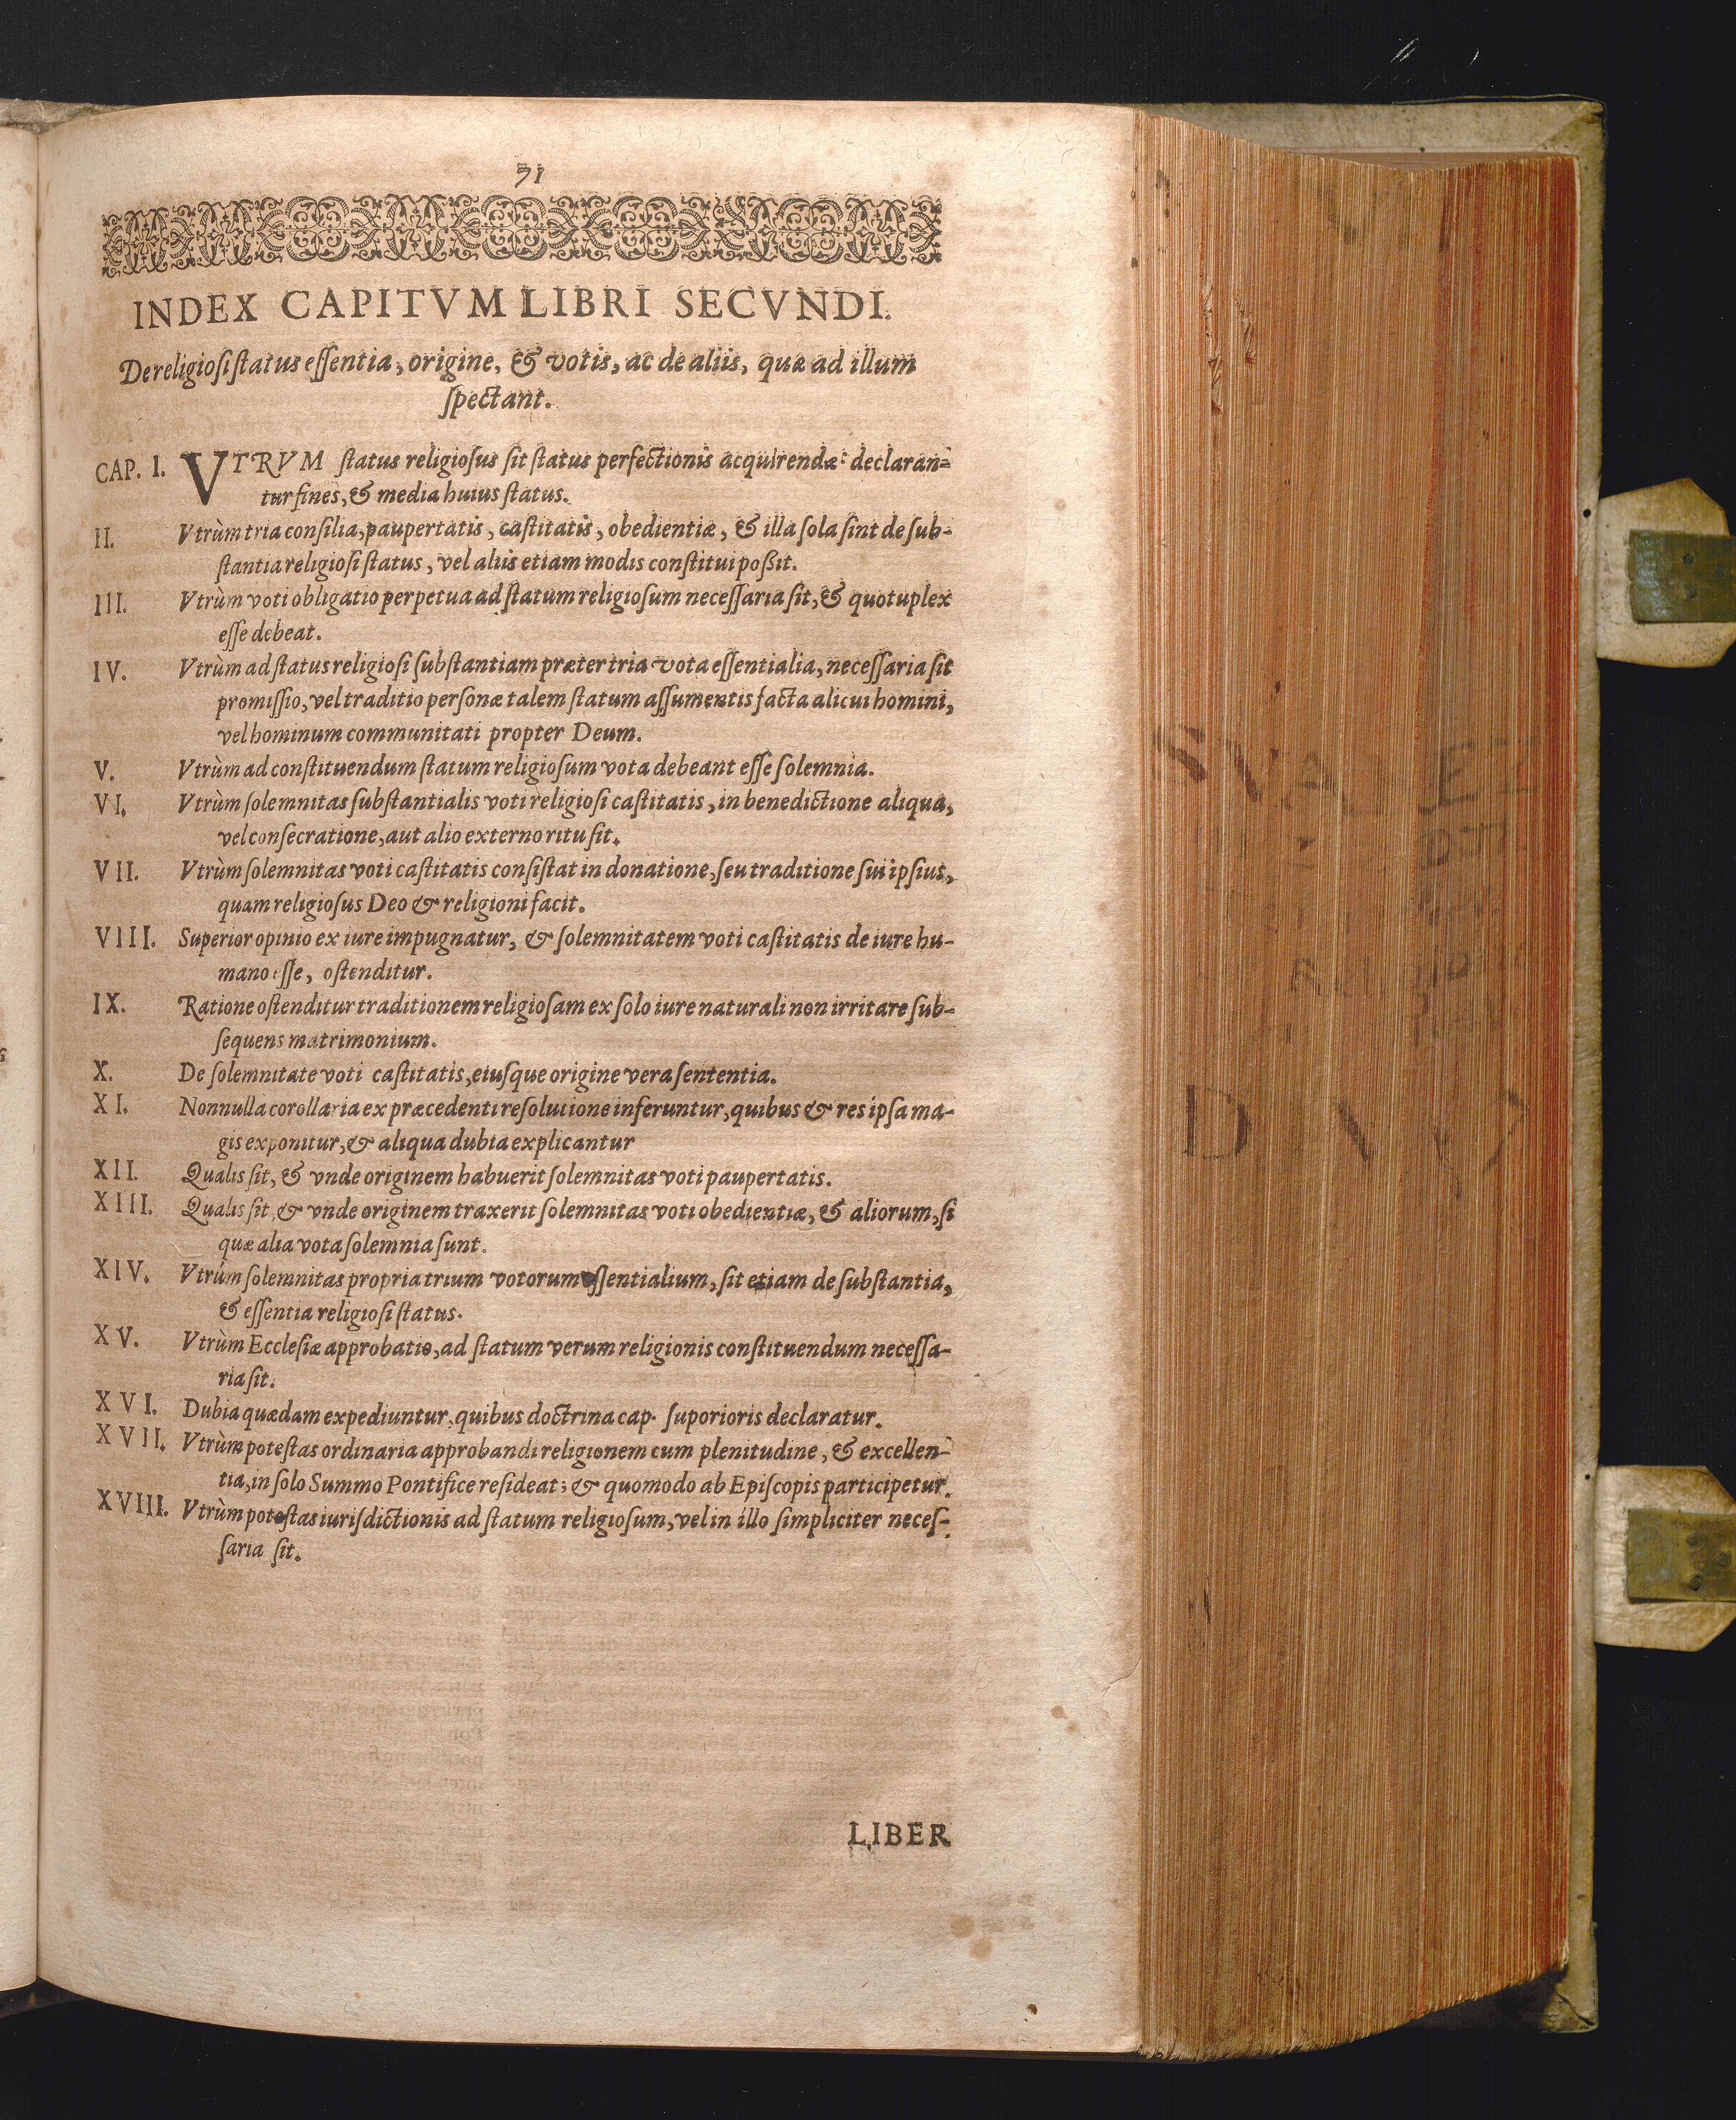 71
INDEX CAPITVM LIBRI SECVNDI.
De religiosi status essentia, origine, & votis, ac de aliis, quæ ad illum
spectant.
CAP. I. VTRVM status religiosus sit status perfectionis acquirendæ: declaran-
tur fines, & media huius status.
II. Vtrùm tria consilia, paupertatis, castitatis, obedientiæ, & illa sola sint de sub-
stantia religiosi status, vel aliis etiam modis constitui possit.
III. Vtrùm voti obligatio perpetua ad statum religiosum necessaria sit, & quotuplex
esse debeat.
IV. Vtrùm ad status religiosi substantiam præter tria vota essentialia, necessaria sit
promissio, vel traditio personæ talem statum assumentis facta alicui homini,
vel hominum communitati propter Deum.
V. Vtrùm ad constituendum statum religiosum vota debeant esse solemnia.
VI. Vtrùm solemnitas substantialis voti religiosi castitatis, in benedictione aliqua,
vel consecratione, aut alio externo ritu sit.
VII. Vtrùm solemnitas voti castitatis consistat in donatione, seu traditione sui ipsius,
quam religiosus Deo & religioni facit.
VIII. Superior opinio ex iure impugnatur, & solemnitatem voti castitatis de iure hu-
mano esse, ostenditur.
IX. Ratione ostenditur traditionem religiosam ex solo iure naturali non irritare sub-
sequens matrimonium.
X. De solemnitate voti castitatis, eiusque origine vera sententia.
XI. Nonnulla corollaria ex præcedenti resolutione inferuntur, quibus & res ipsa ma-
gis exponitur, & aliqua dubia explicantur
XII. Qualis sit, & vnde originem habuerit solemnitas voti paupertatis.
XIII. Qualis sit, & vnde originem traxerit solemnitas voti obedientiæ, & aliorum, si
quæ alia vota solemnia sunt.
XIV. Vtrùm solemnitas propria trium votorum essentialium, sit etiam de substantia,
& essentia religiosi status.
XV. Vtrùm Ecclesiæ approbatio, ad statum verum religionis constituendum necessa-
ria sit.
XVI. Dubia quædam expediuntur, quibus doctrina cap. suporioris declaratur.
XVII. Vtrùm potestas ordinaria approbandi religionem cum plenitudine, & excellen-
tia, in solo Summo Pontifice resideat; & quomodo ab Episcopis participetur.
XVIII. Vtrùm potestas iurisdictionis ad statum religiosum, vel in illo simpliciter neces-
saria sit.
LIBER